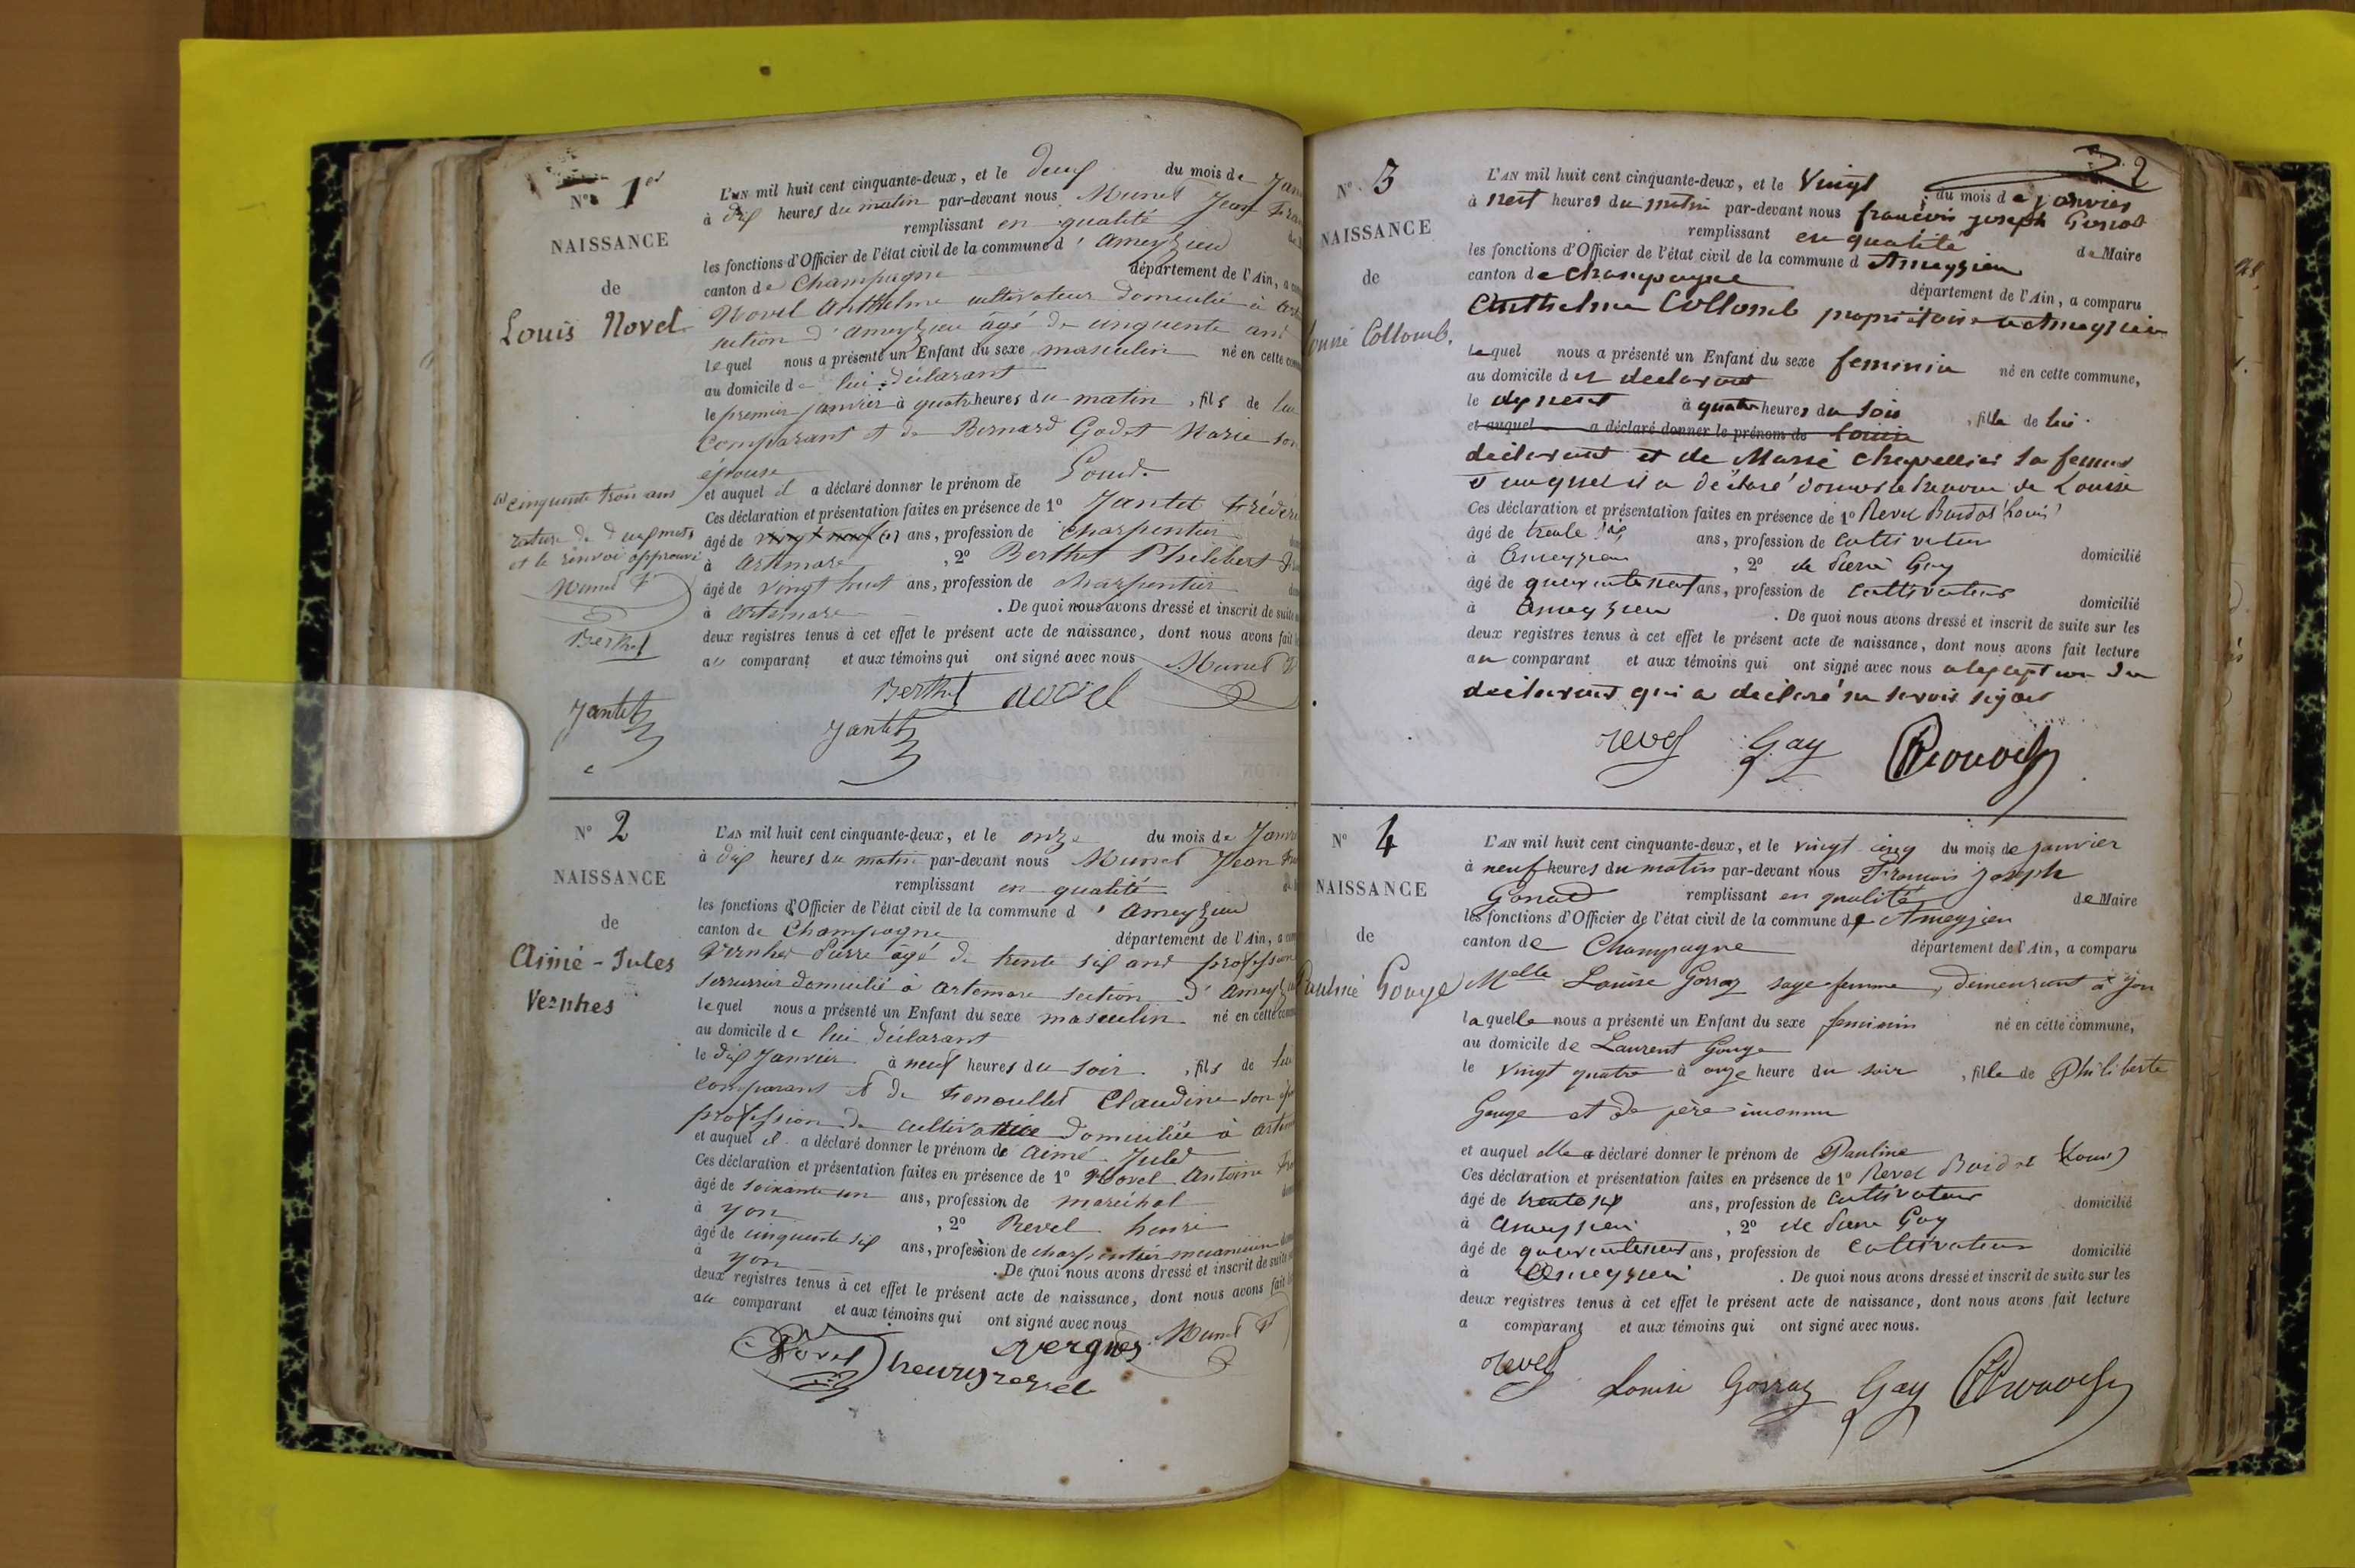 N° 1er
NAISSANCE
de
Louis Novel
L'AN mil huit cent cinquante-deux, et le deux du mois de
à dix heures du matin par-devant nous Munet Jean
remplissant en qualité
les fonctions d'Officier de l'état civil de la commune d'Ameyzieu
canton de Champagne département de l'Ain, a
Novel Anthelme cultivateur domicilié à
section d'Ameyzieu âgé de cinquente ans
lequel nous a présenté un Enfant du sexe masculin né en cette
au domicile de lui déclarant
le premier janvier à quatre heures du matin, fils de lui
comparant et de Bernard Godet Marie son
épouse
et auquel il a déclaré donner le prénom de Louis
Ces déclaration et présentation faites en présence de 1° Jantet
âgé de vingt neuf (1) ans, profession de charpentier
à Artemare, 2° Berthet Philibert
âgé de vingt huit ans, profession de charpentier
à Artemare. De quoi nous avons dressé et inscrit de suite
deux registres tenus à cet effet le présent acte de naissance, dont nous avons fait
au comparant et aux témoins qui ont signé avec nous
(1) cinquente trois ans
rature de deux mots
et le renvoi approuvé
Munet
Berthet
Jantet
Munet
Berthet Novel
Jantet
N° 2
NAISSANCE
de
Aimé-Jules
Vernhes
L'AN mil huit cent cinquante-deux, et le onze du mois de
à dix heures du matin par-devant nous Munet Jean
remplissant en qualité
les fonctions d'Officier de l'état civil de la commune d'Ameyzieu
canton de Champagne département de l'Ain, a
Vernhes Pierre âgé de trente six ans profession
serrurier domicilié à Artemare section d'
lequel nous a présenté un Enfant du sexe masculin né en cette
au domicile de lui déclarant
le dix Janvier à neuf heures du soir, fils de lui
comparant et de Claudine son
profession de cultivatrice domiciliée à
et auquel il a déclaré donner le prénom de Aimé Jules
Ces déclaration et présentation faites en présence de 1° Novel Antoine
âgé de soixante un ans, profession de maréchal
à yon, 2° Revel henri
âgé de cinquente six ans, profession de charpentier mecanicien
à yon. De quoi nous avons dressé et inscrit de suite
deux registres tenus à cet effet le présent acte de naissance, dont nous avons fait
au comparant et aux témoins qui ont signé avec nous
Novel henry revel vergnes Munet
2
N° 3
NAISSANCE
de
Collomb.
L'AN mil huit cent cinquante-deux, et le vingt du mois de janvier
à neuf heures du matin par-devant nous françois joseph
remplissant en qualité de Maire
les fonctions d'Officier de l'état civil de la commune d Ameyzieu
canton de champagne département de l'Ain, a comparu
Anthelme Collomb propriétaire a Ameyzieu
lequel nous a présenté un Enfant du sexe feminin né en cette commune,
au domicile du declarant
le dyneuf à quatre heures du soir, fille de lui
et auquel a déclaré donner le prénom de Louise
declarant et de Marie chapellier sa femme
et auquel il a déclaré donner le prenom de Louise
Ces déclaration et présentation faites en présence de 1° Revel Louis
âgé de trente six ans, profession de cultivateur domicilié
à Ameyzieu, 2° de Pierre Gay
âgé de quarenteneuf ans, profession de cultivateur domicilié
à Ameyzieu. De quoi nous avons dressé et inscrit de suite sur les
deux registres tenus à cet effet le présent acte de naissance, dont nous avons fait lecture
au comparant et aux témoins qui ont signé avec nous a lexception du
declarant qui a declaré ne savoir signer
revel Gay
N° 4
NAISSANCE
de
Pauline Gouge
L'AN mil huit cent cinquante-deux, et le vingt cinq du mois de janvier
à neuf heures du matin par-devant nous François joseph
remplissant en qualité de Maire
les fonctions d'Officier de l'état civil de la commune de Ameyzieu
canton de Champagne département de l'Ain, a comparu
Melle Louise Gorraz sage-femme, demeurant à yon
laquelle nous a présenté un Enfant du sexe feminin né en cette commune,
au domicile de Laurent Gouge
le vingt quatre à onze heure du soir, fille de Philiberte
Gouge et de père inconnu
et auquel elle a déclaré donner le prénom de Pauline
Ces déclaration et présentation faites en présence de 1° Revel Louis
âgé de trente six ans, profession de cultivateur domicilié
à Ameyzieu, 2° de Pierre Gay
âgé de quarenteneuf ans, profession de cultivateur domicilié
à Ameyzieu. De quoi nous avons dressé et inscrit de suite sur les
deux registres tenus à cet effet le présent acte de naissance, dont nous avons fait lecture
a comparant et aux témoins qui ont signé avec nous.
revel Louise Gorraz Gay